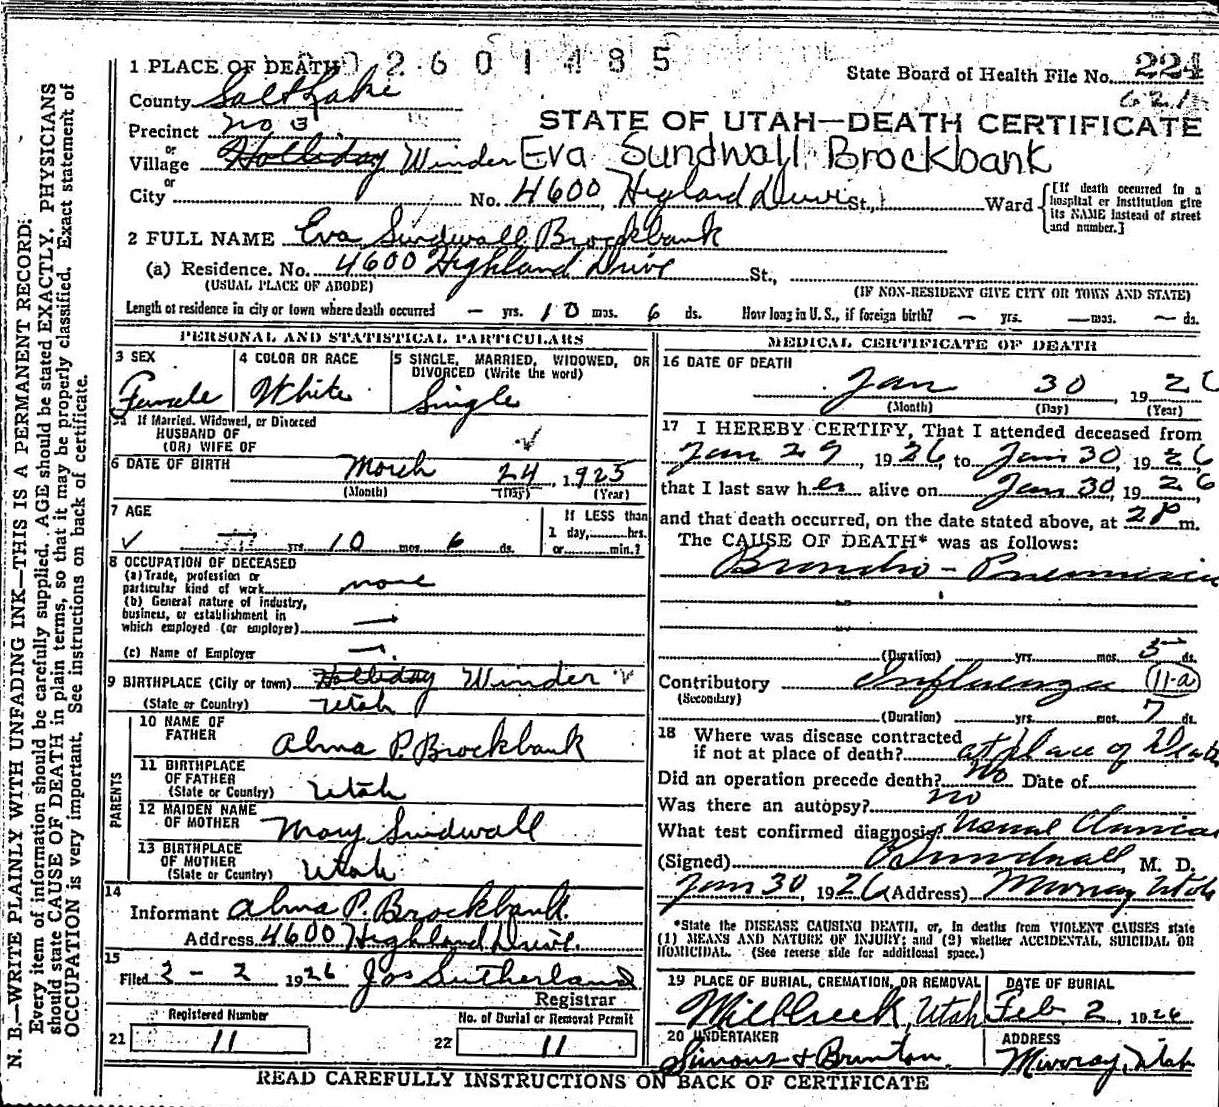 N. B.—WRITE PLAINLY WITH UNFADING INK—THIS IS A PERMANENT RECORD.
Every item of information should be carefully supplied. AGE should be stated EXACTLY. PHYSICIANS
should state CAUSE OF DEATH in plain terms, so that it may be properly classified. Exact statement of
OCCUPATION is very important. See instructions on back of certificate.
2601485
1 PLACE OF DEATH
State Board of Health File No. 224
County Salt Lake
Precinct No 3
STATE OF UTAH—DEATH CERTIFICATE
or
Village Holliday Winder
Eva Sundwall Brockbank
or
City No. 4600, Higland Drive St., Ward
[If death occurred in a hospital or institution give its NAME instead of street and number.]
2 FULL NAME Eva Sundwall Brockbank
(a) Residence. No. 4600 Highland Drive St.,
(USUAL PLACE OF ABODE) (IF NON-RESIDENT GIVE CITY OR TOWN AND STATE)
Length of residence in city or town where death occurred — yrs. 10 mos. 6 ds. How long in U. S., if foreign birth? — yrs. — mos. — ds.
PERSONAL AND STATISTICAL PARTICULARS
3 SEX
Female
4 COLOR OR RACE
White
5 SINGLE, MARRIED, WIDOWED, OR
DIVORCED (Write the word)
Single
5a If Married, Widowed, or Divorced
HUSBAND OF
(OR) WIFE OF
6 DATE OF BIRTH March 24, 1925
(Month) (Day) (Year)
7 AGE
yrs. 10 mos. 6 ds.
If LESS than
1 day, hrs.
or min.?
8 OCCUPATION OF DECEASED
(a) Trade, profession or
particular kind of work none
(b) General nature of industry,
business, or establishment in
which employed (or employer) —
(c) Name of Employer —
9 BIRTHPLACE (City or town) Holliday Winder
(State or Country) Utah
PARENTS
10 NAME OF
FATHER Alma P. Brockbank
11 BIRTHPLACE
OF FATHER
(State or Country) Utah
12 MAIDEN NAME
OF MOTHER Mary Sundwall
13 BIRTHPLACE
OF MOTHER
(State or Country) Utah
14
Informant Alma P. Brockbank.
Address 4600 Highland Drive.
15
Filed 2 - 2 1926 Jos Sutherland
Registrar
Registered Number
21 11
No. of Burial or Removal Permit
22 11
MEDICAL CERTIFICATE OF DEATH
16 DATE OF DEATH
Jan 30, 1926
(Month) (Day) (Year)
17 I HEREBY CERTIFY, That I attended deceased from
Jan 29, 1926, to Jan 30, 1926
that I last saw her alive on Jan 30, 1926
and that death occurred, on the date stated above, at 2P m.
The CAUSE OF DEATH* was as follows:
Broncho - Pneumonia
(Duration) yrs. mos. 5 ds.
Contributory Influenza 11-a
(Secondary)
(Duration) yrs. mos. 7 ds.
18 Where was disease contracted
if not at place of death? at place of Death
Did an operation precede death? No Date of
Was there an autopsy? no
What test confirmed diagnosis? Usual Clinical
(Signed) Sundwall, M. D.
Jan 30, 1926 (Address) Murray Utah
*State the DISEASE CAUSING DEATH, or, in deaths from VIOLENT CAUSES state
(1) MEANS AND NATURE OF INJURY; and (2) whether ACCIDENTAL, SUICIDAL OR
HOMICIDAL. (See reverse side for additional space.)
19 PLACE OF BURIAL, CREMATION, OR REMOVAL
Millcreek, Utah
DATE OF BURIAL
Feb 2, 1926
20 UNDERTAKER
Simons & Brunton.
ADDRESS
Murray, Utah
READ CAREFULLY INSTRUCTIONS ON BACK OF CERTIFICATE